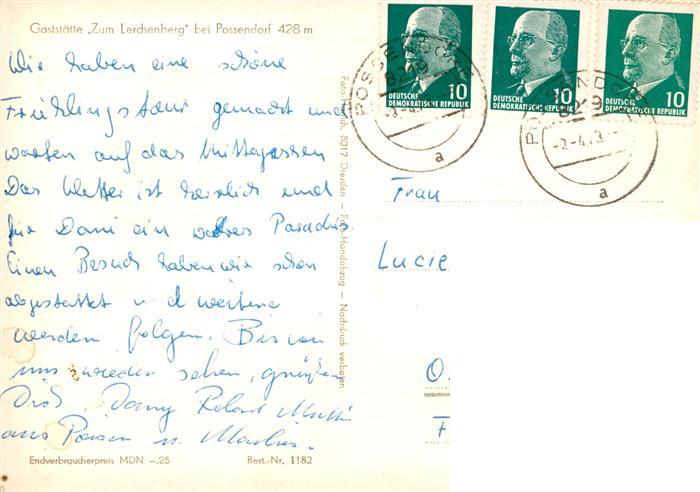 Gaststätte „Zum Lerchenberg" bei Possendorf 428 m
Wir haben eine schöne
Frühlingstour gemacht und
warten auf das Mittagessen
Das Wetter ist herrlich und
für Dani ein wahres Paradis.
Einen Besuch haben wir schon
abgestattet und weitere
werden folgen. Bis wir
uns wieder sehen, grüßen
Dich Dany Roland Mutti
aus u.
Endverbraucherpreis MDN –,25
Best.-Nr. 1182
8017 Dresden – Foto-Handabzug – Nachdruck verboten
10
DEUTSCHE
DEMOKRATISCHE REPUBLIK
10
DEUTSCHE
DEMOKRATISCHE REPUBLIK
10
DEUTSCHE
DEMOKRATISCHE REPUBLIK
POSSENDORF
8219
a
POSSENDORF
8219
a
Frau
Lucie
O.
F